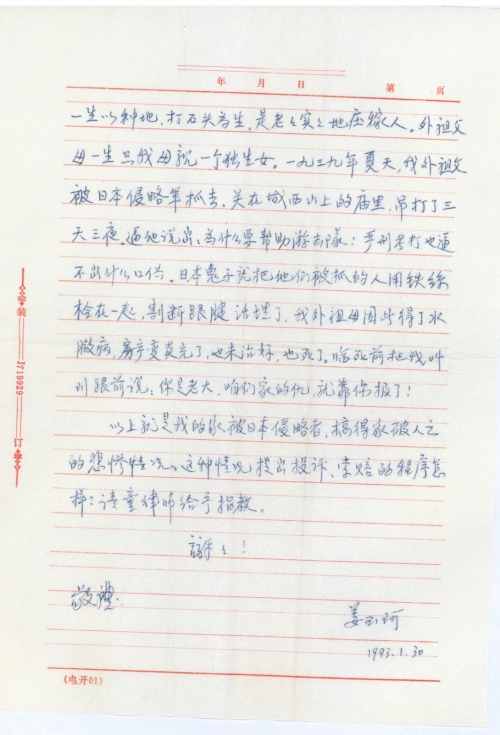 年 月 日 第 页
一生以种地、打石头为生，是老老实实地庄稼人。外祖父
母一生只我母亲一个独生女。一九三九年夏天，我外祖父
被日本侵略军抓去，关在城西山上的庙里，吊打了三
天三夜。逼他说出为什么要帮助游击队！严刑考打也逼
不出什么口供。日本鬼子就把他们被抓的人用铁丝
栓在一起，割断跟腱活埋了，我外祖母因此得了水
臌病，房产变卖完了，也未治好，也死了。临死前把我叫
到跟前说：你是老大，咱们家的仇，就靠你报了！
以上就是我的家被日本侵略者，搞得家破人亡
的悲惨情况。这种情况提出投诉、索赔的程序怎
样？请童律师给予指教。
谢谢！
敬礼
姜玉珂
1993.1.30
(电开01)
装 J719929 订